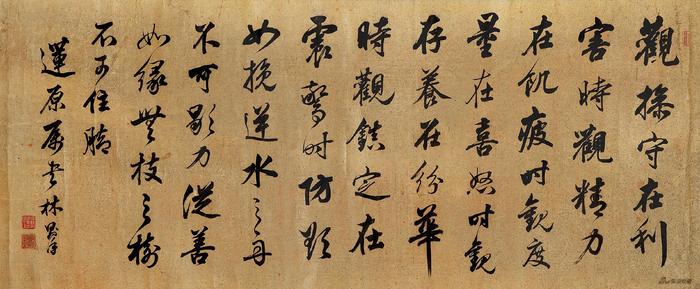 觀操守在利
害時觀精力
在飢疲时觀度
量在喜怒时觀
存養在紛華
時觀鎮定在
震驚时防欲
如挽逆水之舟
不可歇力從善
如緣無枝之樹
不可住腳
蓮原屬書 林則徐